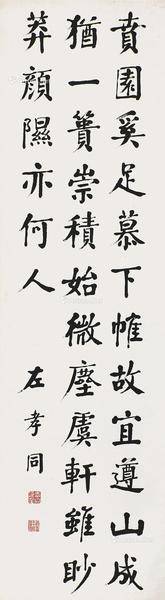 賁園奚足慕下帷故宜遵山成
猶一簣崇積始微塵虞軒雖眇
莽顔隰亦何人
左孝同